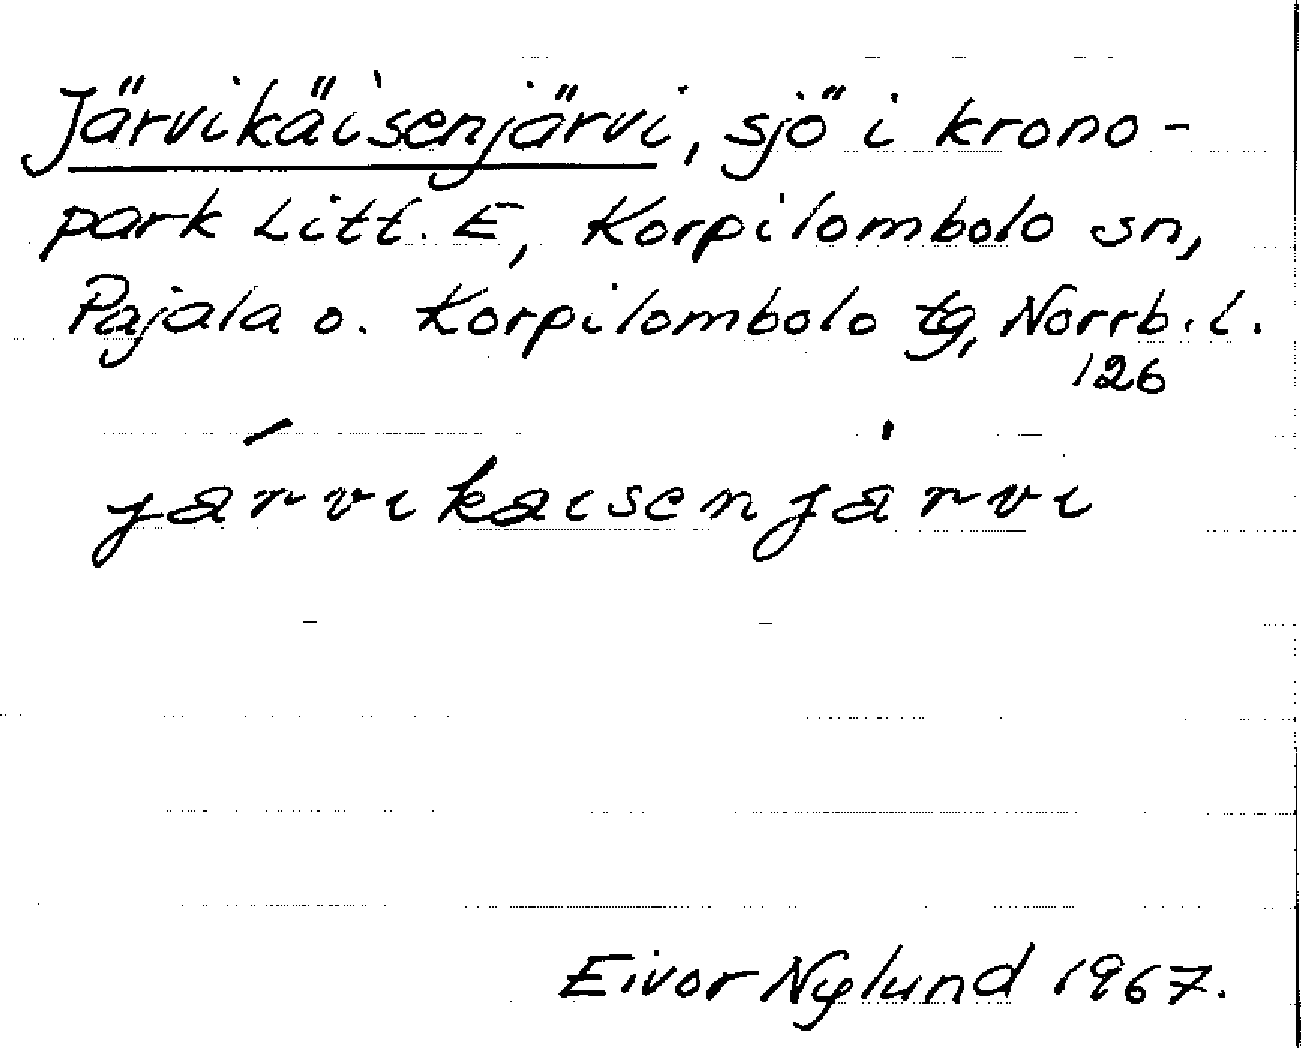 Järvikäisenjärvi, sjö i krono-
park Litt. E, Korpilombolo sn,
Pajala o. Korpilombolo tg, Norrb. l.
126
járvikaisenjàrvi
Eivor Nylund 1967.